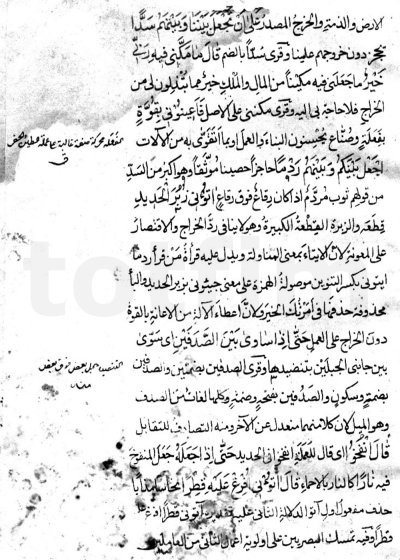 الارض والذمة والخراج المصدر على ان تجعل بيننا وبينهم سدا
يحجز دون خروجهم علينا وقرئ سدا بالضم قال ما مكني فيه ربي
خير ما جعلني فيه مكينا من المال والملك خير مما تبذلون لى من
الخراج فلا حاجة بى اليه وقرئ مكننى على الاصل فاعينونى بقوة
بفعلة وصناع يحسنون البناء والعمل او بما اتقوى به من الآلات
اجعل بينكم وبينهم ردما حاجزا حصينا موثقا وهو اكبر من السد
من قولهم ثوب مردم اذا كان رقاع فوق رقاع اتونى زبر الحديد
قطعه والزبرة القطعة الكبيرة وهو لا ينافى رد الخراج والاقتصار
على المعونة لان الايتاء بمعنى المناولة ويدل عليه قراة من قرا ردما
ايتونى بكسر التنوين موصولة الهمزة على معنى جيئونى بزبر الحديد والبا
محذوفة حذفها فى امرتك الخير ولان اعطاء الآلة من الاعانة بالقوة
دون الخراج على العمل حتى اذا ساوى بين الصدفين اى سوى
بين جانبى الجبلين بتنضيدها وقرئ الصدفين بضمتين والصدفين
بضمة وسكون والصدفين بفتح وضمة وكلها لغات من الصدف
وهو الميل لان كلا منهما منعدل عن الآخر ومنه التصادف للتقابل
قال انفخوا اى قال للعملة انفخوا فى الحديد حتى اذا جعله جعل المنفوخ
فيه نارا كالنار بالاحماء قال آتونى افرغ عليه قطرا
حذف مفعول الاول لدلالة الثانى عليه
قطرا وفيه تمسك البصريين على اولوية اعمال الثانى من العاملين